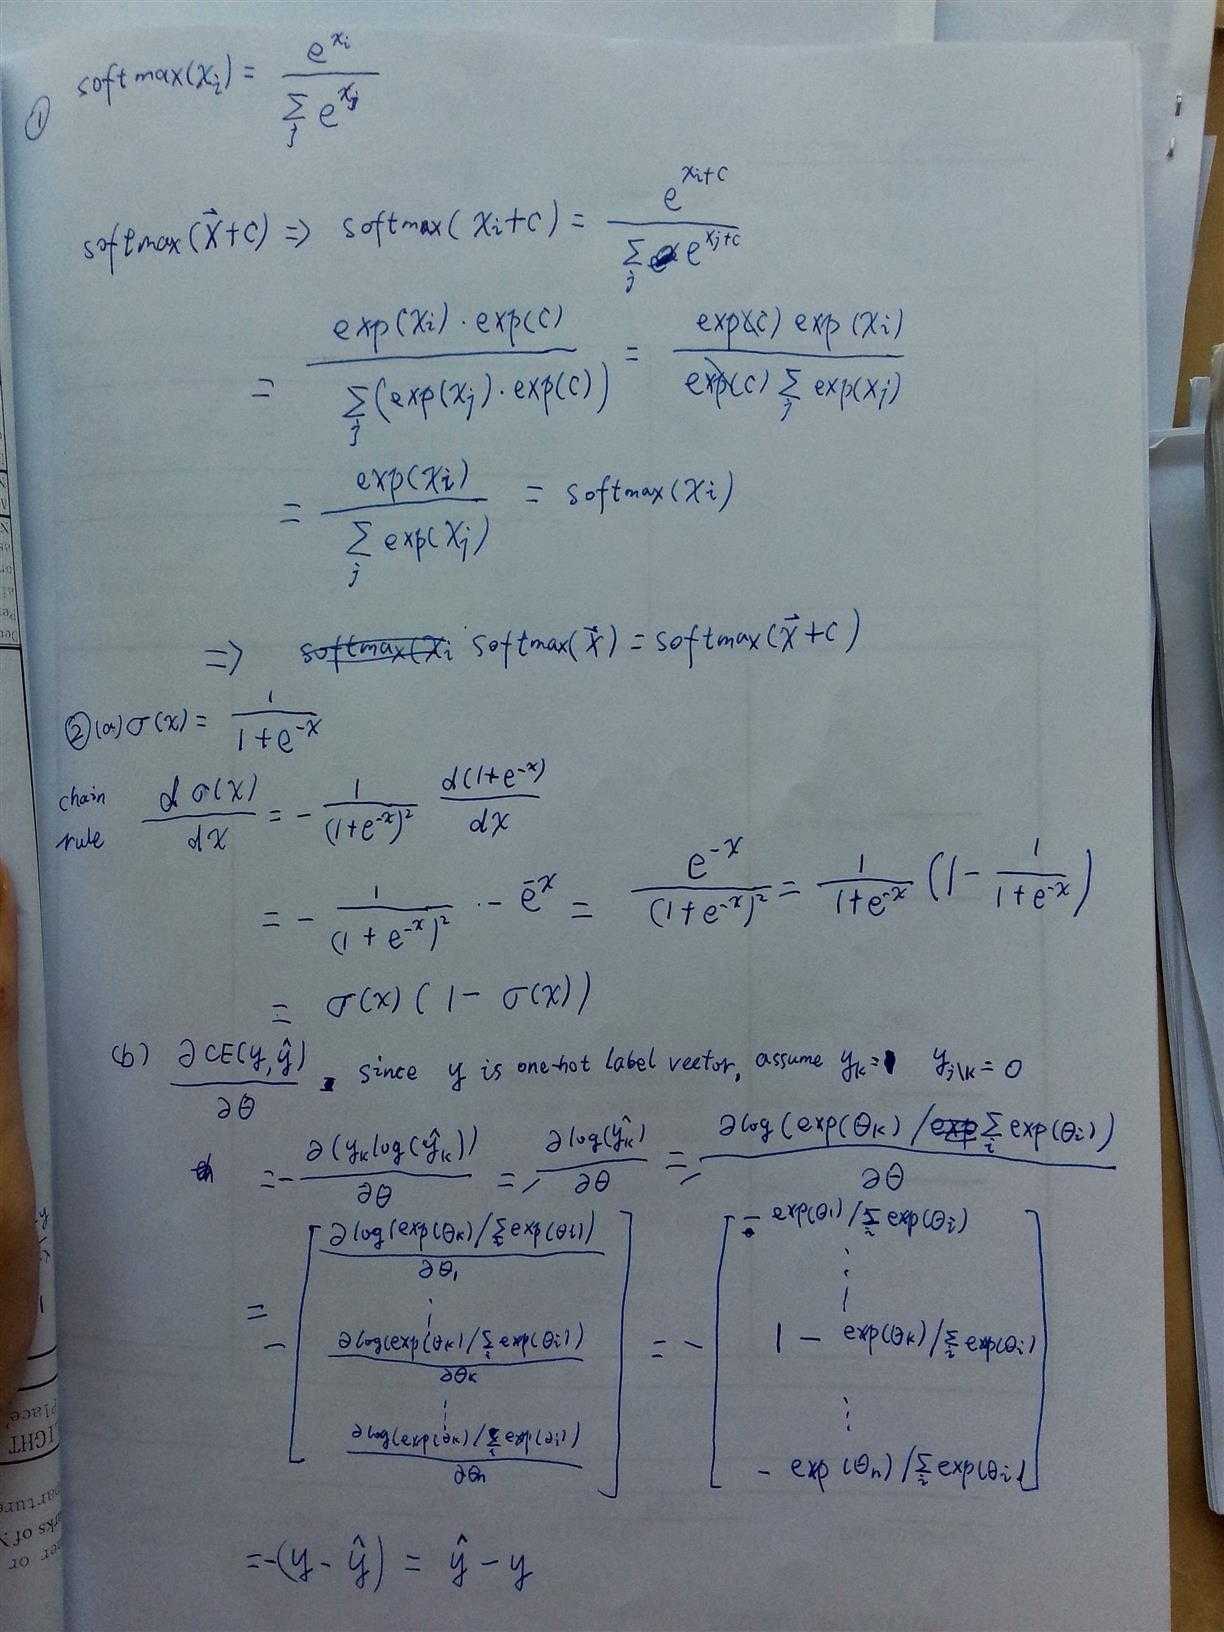 ① softmax(xᵢ) = e^{xᵢ} / Σⱼ e^{xⱼ}
softmax(x⃗+c) => softmax(xᵢ+c) = e^{xᵢ+c} / Σⱼ e^{xⱼ+c}
= exp(xᵢ)·exp(c) / Σⱼ(exp(xⱼ)·exp(c)) = exp(c) exp(xᵢ) / exp(c) Σⱼ exp(xⱼ)
= exp(xᵢ) / Σⱼ exp(xⱼ) = softmax(xᵢ)
=> softmax(xᵢ softmax(x⃗) = softmax(x⃗+c)
② (a) σ(x) = 1 / 1+e^{-x}
chain rule dσ(x)/dx = - 1/(1+e^{-x})² d(1+e^{-x})/dx
= - 1/(1+e^{-x})² · - e^{-x} = e^{-x}/(1+e^{-x})² = 1/1+e^{-x} (1 - 1/1+e^{-x})
= σ(x)(1 - σ(x))
(b) ∂CE(y,ŷ)/∂θ . since y is one-hot label vector, assume yₖ=1 y_{i\k}=0
= - ∂(yₖlog(ŷₖ))/∂θ = - ∂log(ŷₖ)/∂θ = - ∂log(exp(θₖ)/Σᵢ exp(θᵢ))/∂θ
= - [ ∂log(exp(θₖ)/Σᵢ exp(θᵢ))/∂θ₁ ⋮ ∂log(exp(θₖ)/Σᵢ exp(θᵢ))/∂θₖ ⋮ ∂log(exp(θₖ)/Σᵢ exp(θᵢ))/∂θₙ ] = - [ - exp(θ₁)/Σᵢ exp(θᵢ) ⋮ 1 - exp(θₖ)/Σᵢ exp(θᵢ) ⋮ - exp(θₙ)/Σᵢ exp(θᵢ) ]
= -(y - ŷ) = ŷ - y